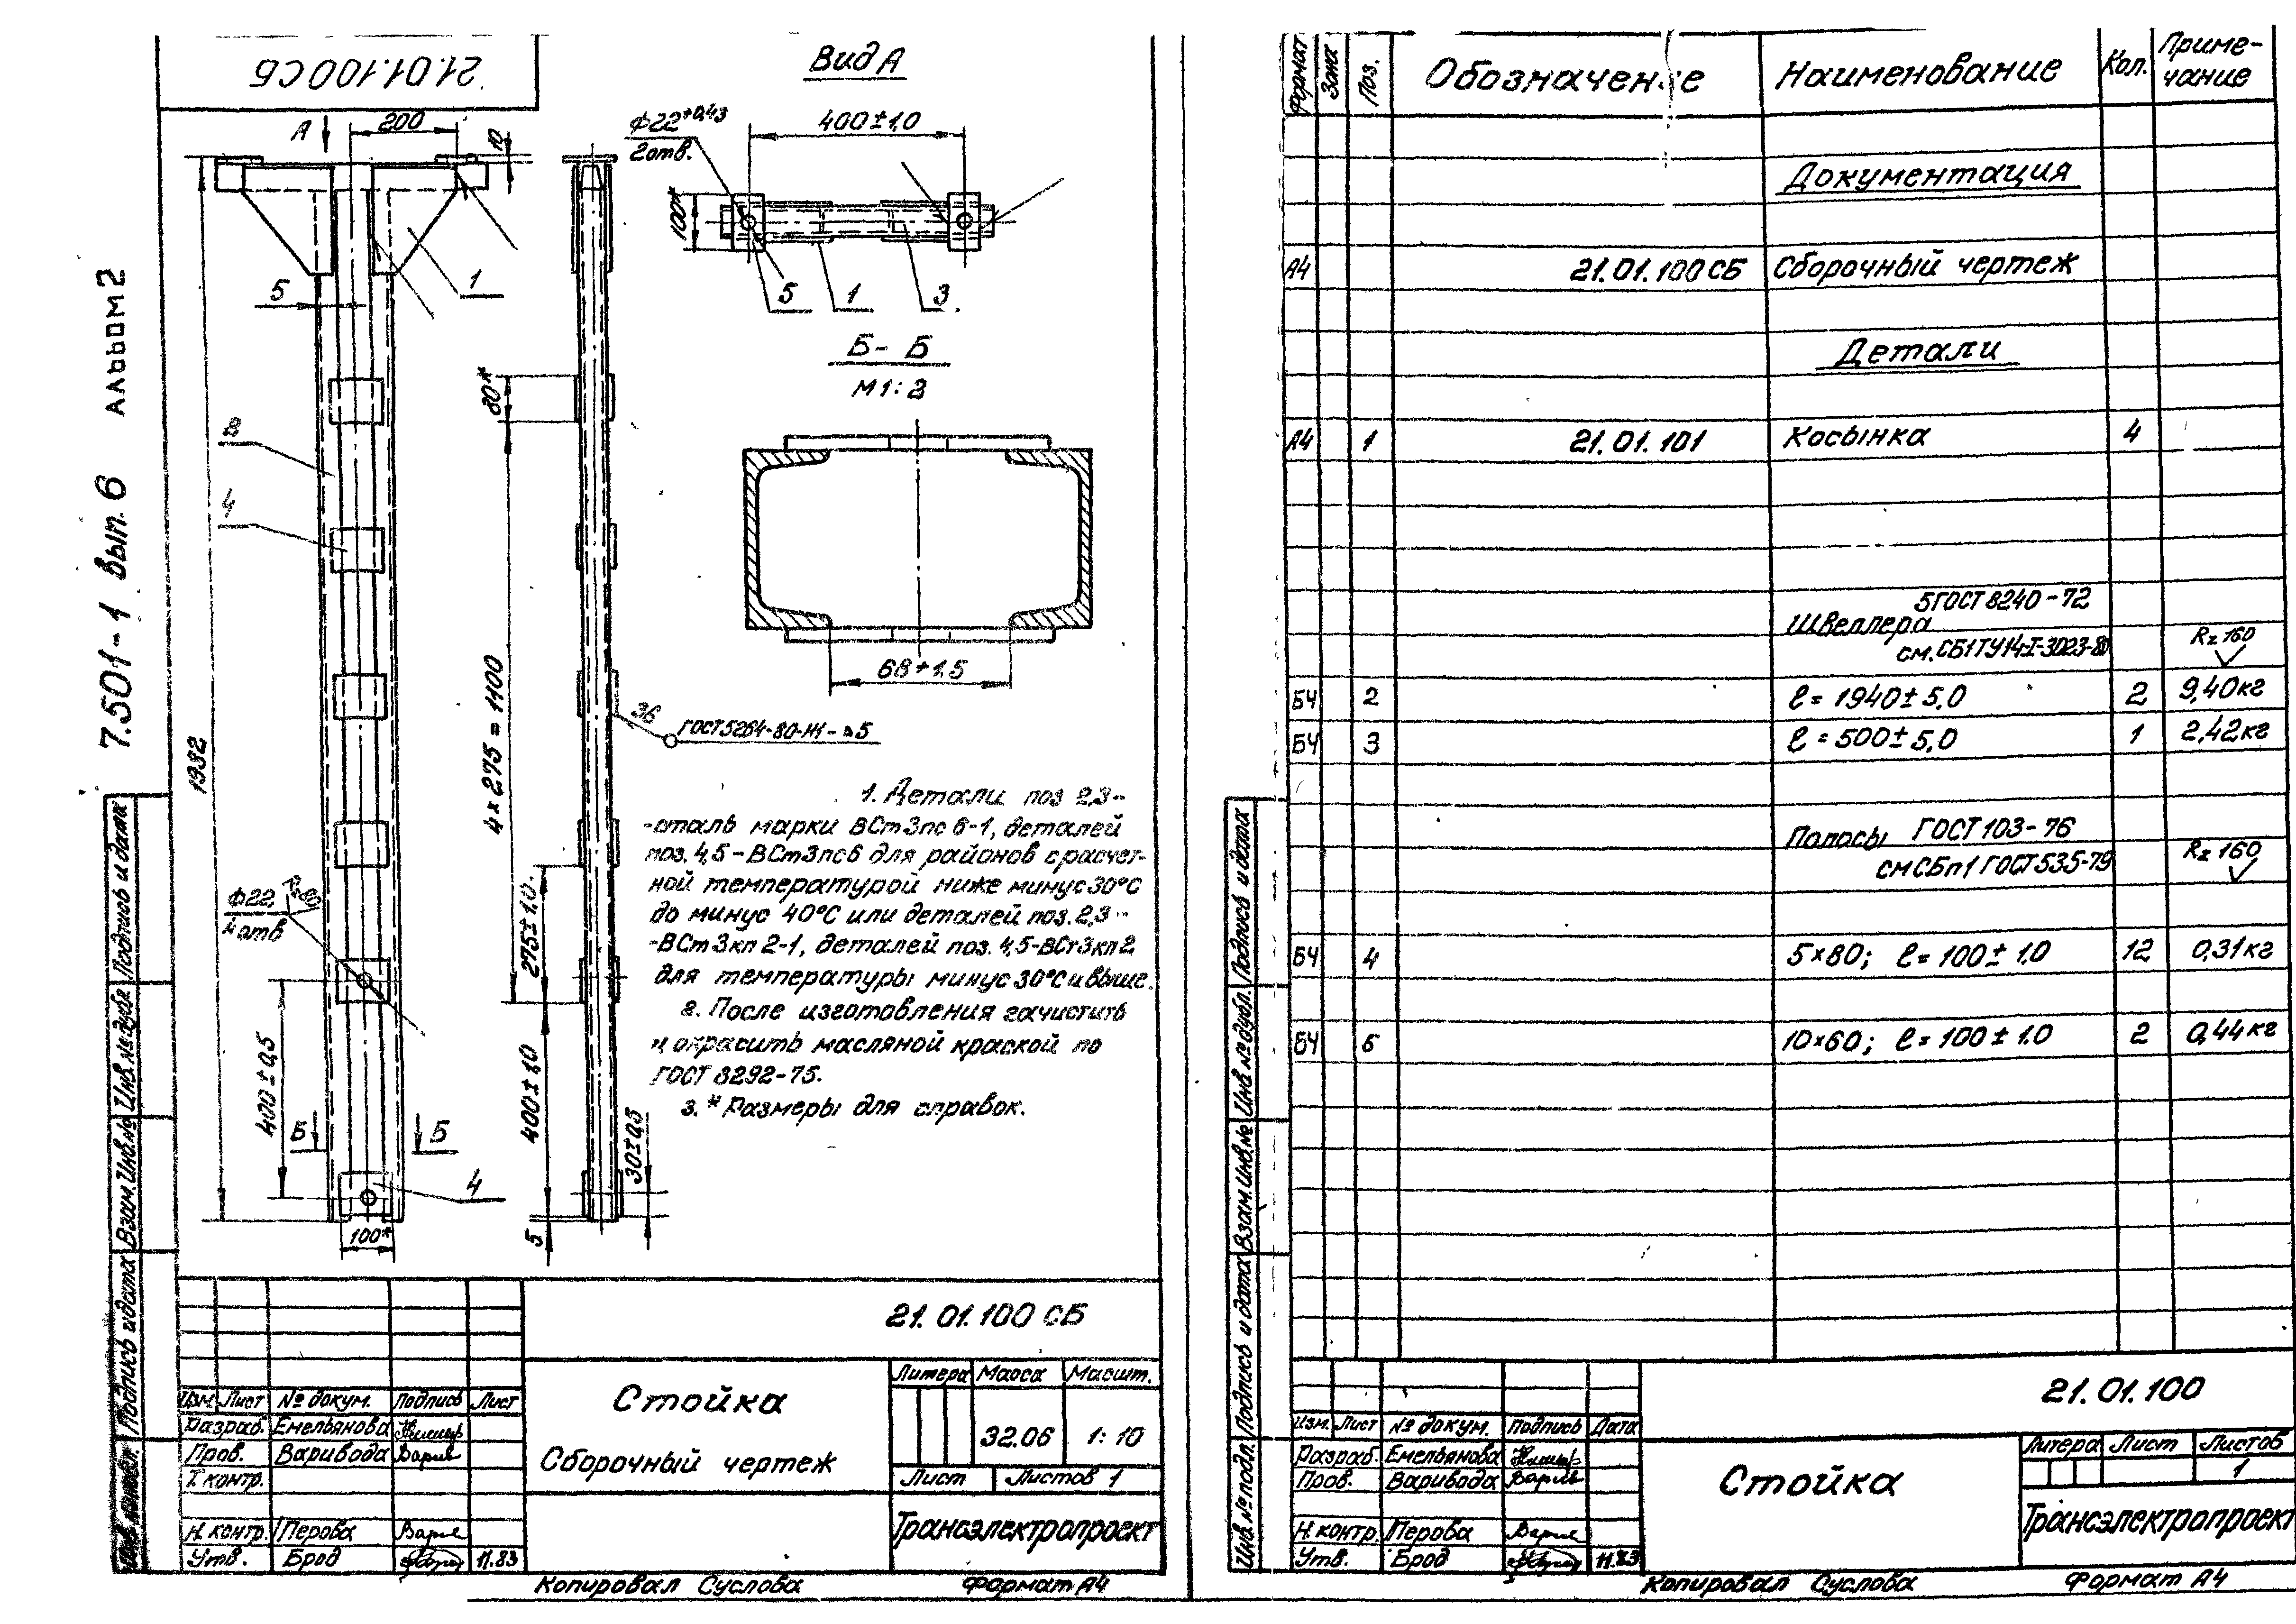 21.01.100 СБ
7.501-1 вып. 6 альбом 2
Вид А
А
200
10
Ф22+0,43
2 отв.
400±1,0
100*
5
1
3
5
1
Б-Б
М1:2
80*
8
4
68±1,5
36
ГОСТ 5264-80-Н1-⊿5
1932
4×275=1100
Ф22
Rz80
4 отв
275±1,0
400±0,5
400±1,0
30±0,5
Б
Б
4
100*
5
1. Детали поз 2,3-
-сталь марки ВСт3пс6-1, деталей
поз. 4,5-ВСт3пс6 для районов с расчет-
ной температурой ниже минус 30°С
до минус 40°С или деталей поз. 2,3-
-ВСт3кп2-1, деталей поз. 4,5-ВСт3кп2
для температуры минус 30°С и выше.
2. После изготовления зачистить
и окрасить масляной краской по
ГОСТ 8292-75.
3. *Размеры для справок.
Подпись и дата
Инв. № дубл.
Взам. Инв. №
Подпись и дата
21.01.100 СБ
Изм. Лист № докум. Подпись Лист
Разраб. Емельянова
Пров. Варивода
Т. контр.
Н. контр. Перова
Утв. Брод 11.83
Стойка
Сборочный чертеж
Литера Масса Масшт.
32.06 1:10
Лист Листов 1
Трансэлектропроект
Копировал Суслова Формат А4
Формат Зона Поз. Обозначение Наименование Кол. Приме-
чание
Документация
А4 21.01.100 СБ Сборочный чертеж
Детали
А4 1 21.01.101 Косынка 4
5 ГОСТ 8240-72
Швеллера
см. СБ1 ТУ14-I-3023-80 Rz 160
БЧ 2 ℓ=1940±5,0 2 9,40кг
БЧ 3 ℓ=500±5,0 1 2,42кг
Полосы ГОСТ 103-76
см СБп1 ГОСТ 535-79 Rz 160
БЧ 4 5×80; ℓ=100±1.0 12 0,31кг
БЧ 5 10×60; ℓ=100±1.0 2 0,44кг
Подпись и дата
Инв № дубл.
Взам. Инв. №
Подпись и дата
Инв. № подл.
21.01.100
Изм. Лист № докум. Подпись Дата
Разраб. Емельянова
Пров. Варивода
Н. контр. Перова
Утв. Брод 11.83
Стойка
Литера Лист Листов
1
Трансэлектропроект
Копировал Суслова Формат А4